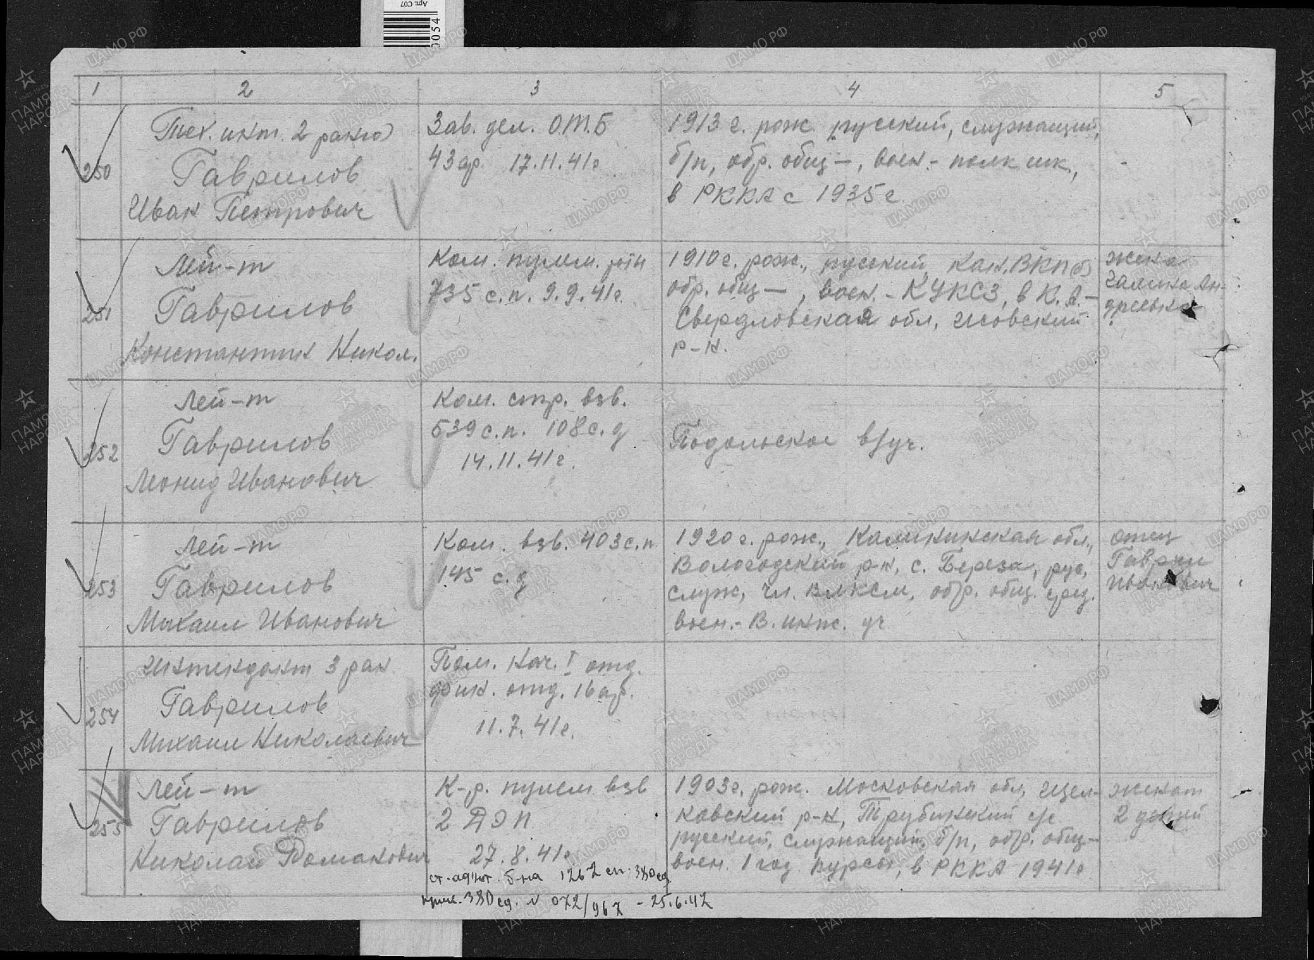 0054
1 2 3 4 5
250
Тех. инт. 2 ранга
Гаврилов
Иван Петрович
Зав. дел. О.Т.Б
43ар. 17.11.41г
1913 г. рож русский, служащий,
б/п, обр. общ —, воен. - полк шк,
в РККА с 1935г
-
251
Лей-т
Гаврилов
Константин Никол.
Ком. пулем. роты
735 с.п. 9.9.41г.
1910 г. рож., русский, кан. ВКП(б)
обр. общ —, воен. - КУКСЗ, в К.А. -
Свердловская обл, Исовский
р-н.
жена
Галина Ан-
дреевна
252
Лей-т
Гаврилов
Леонид Иванович
Ком. стр. взв.
539 с.п. 108 с.д
14.11.41г.
Подольское в/уч.
253
Лей-т
Гаврилов
Михаил Иванович
Ком. взв. 403 с.п
145 с.д
1920 г. рож., Калининская обл.,
Вологодский р-н, с. Береза, рус,
служ, чл. ВЛКСМ, обр. общ. сред.
воен. - В. инж. уч
отец
Гаврил
Иванович
254
Интендант 3 ран.
Гаврилов
Михаил Николаевич
Пом. нач. I отд.
фин. отд. 16 ар.
11.7.41г.
255
Лей-т
Гаврилов
Николай Романович
К-р. пулем. взв
2 ДЭП
27.8.41г
1903 г. рож. Московская обл, Щел-
ковский р-н, Трубинский с/с
русский, служащий, б/п, обр. общ -
воен. 1 год. курсы, в РККА 1941г
жена т
2 детей
ст. ад'ют. б-на 1262 сп. 380 сд
прик. 380 сд. № 072/967 - 25.6.42